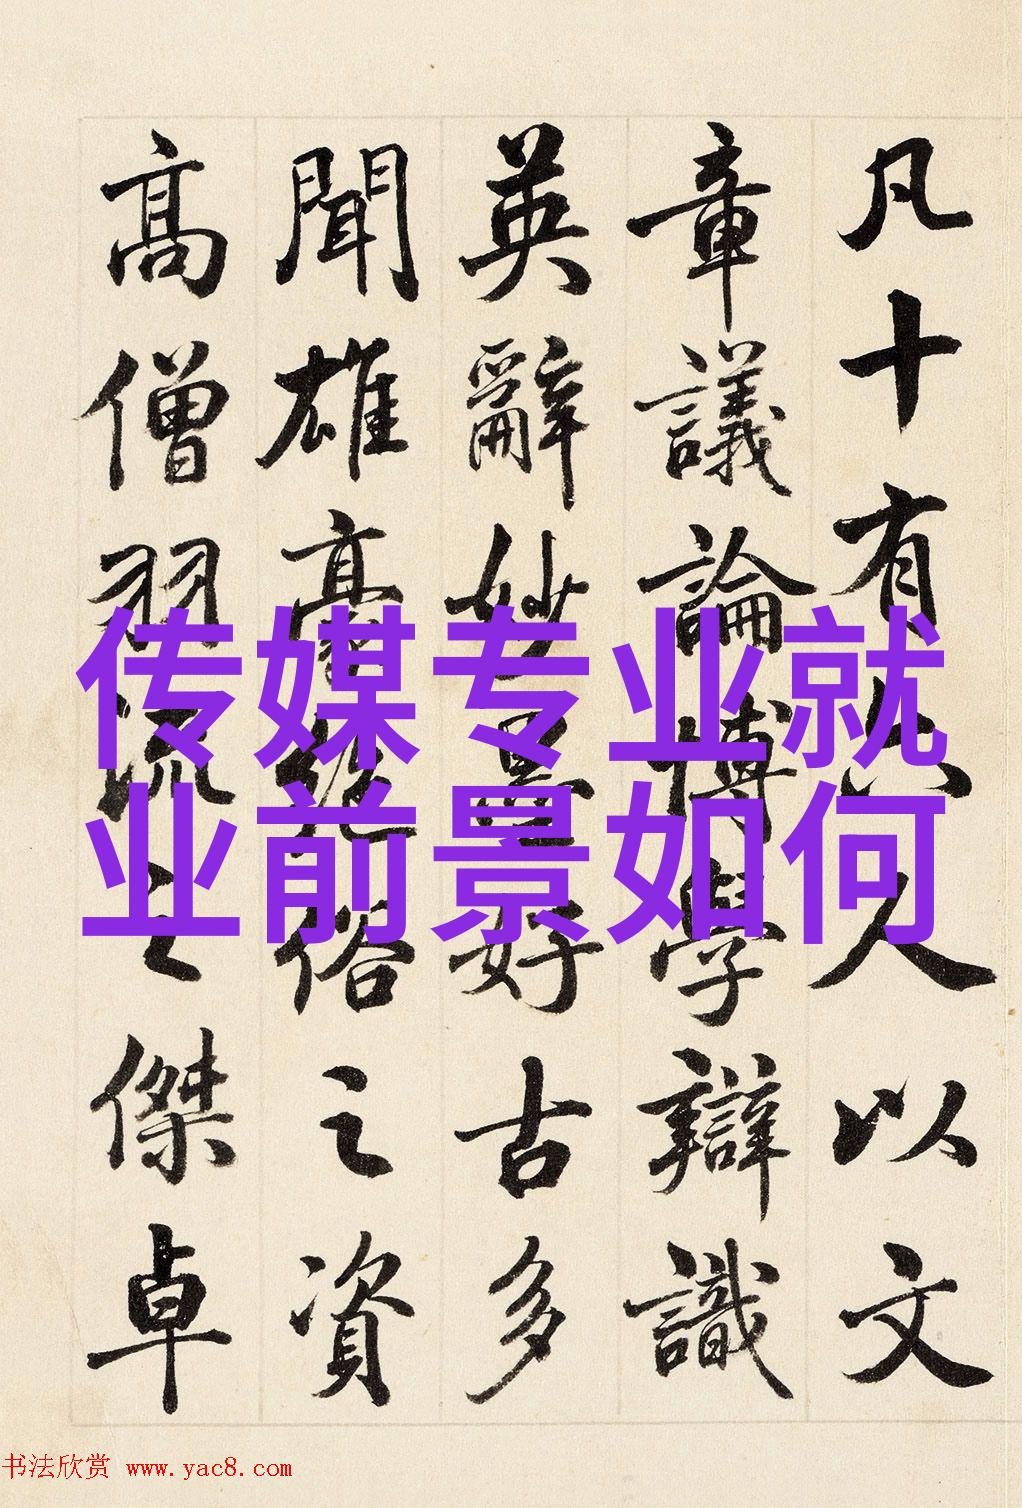 凡十有六人以文
章議論博學辯識
英辭妙墨好古多
聞雄豪絕俗之資
高僧羽流之傑卓
传媒专业就
业前景如何
书法欣赏 www.yac8.com